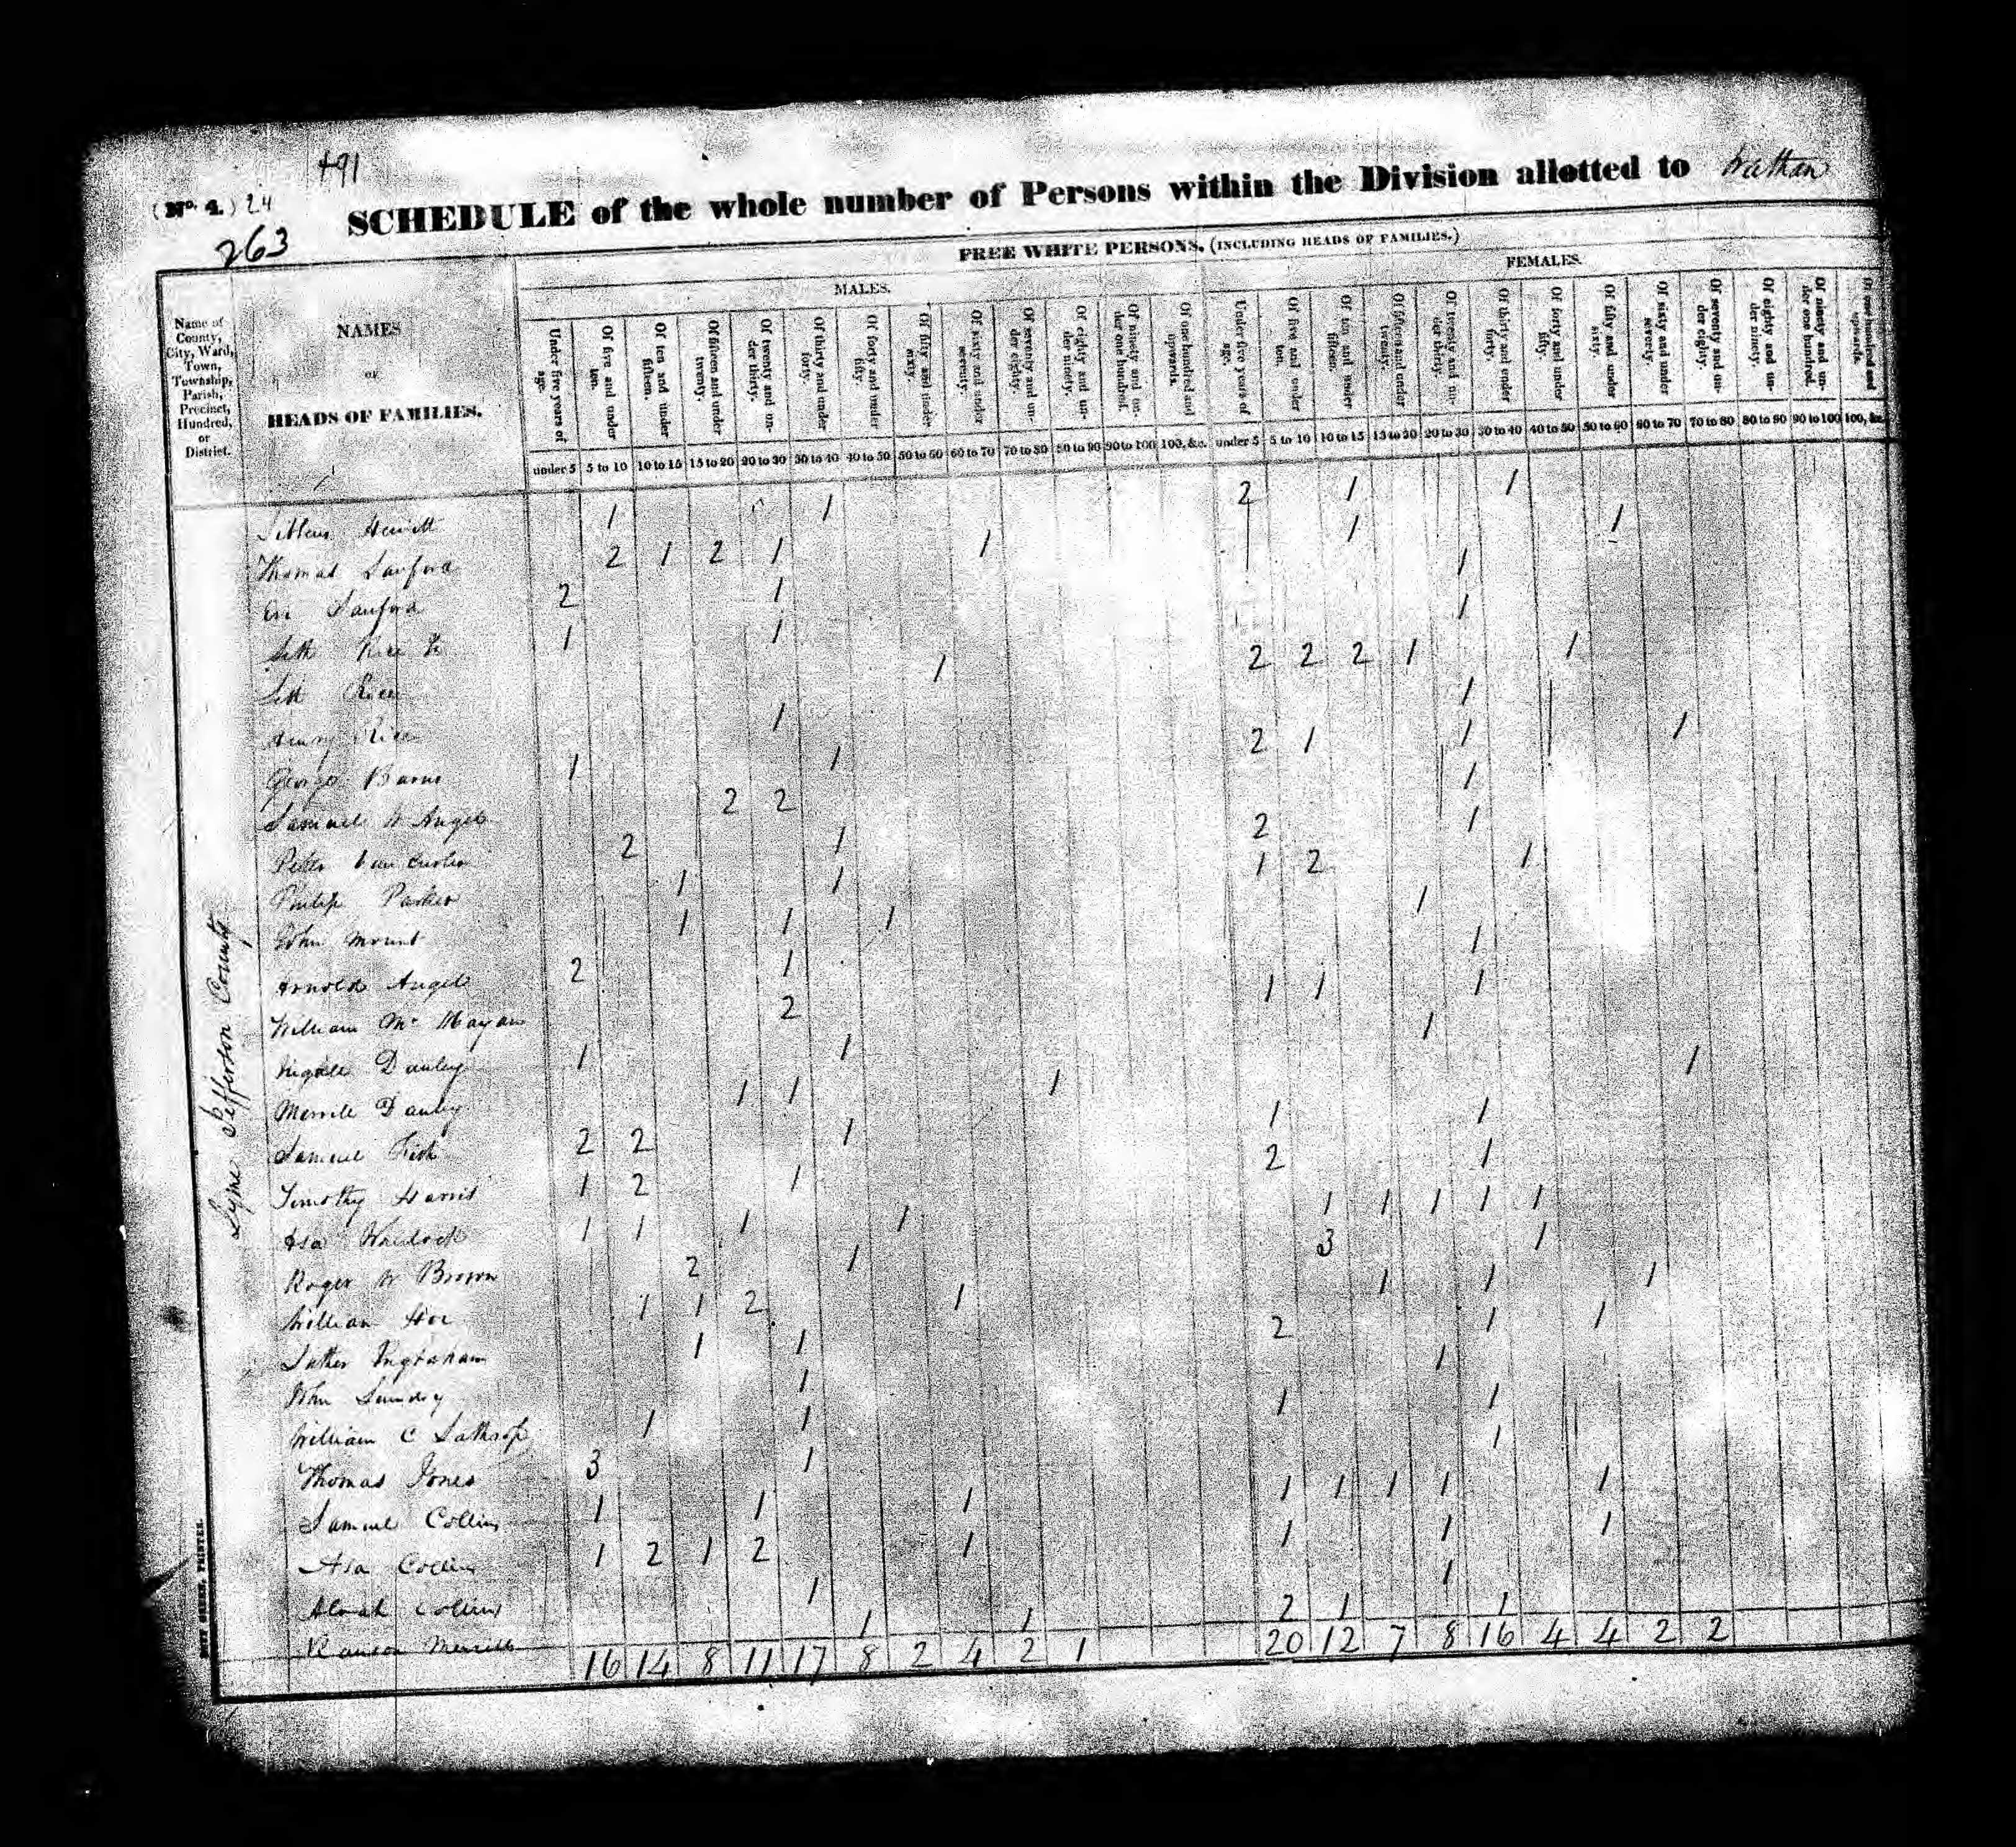 491
(No. 4.) 24
263
SCHEDULE of the whole number of Persons within the Division allotted to Nathan
FREE WHITE PERSONS, (INCLUDING HEADS OF FAMILIES.)
MALES. FEMALES.
Name of County, City, Ward, Town, Township, Parish, Precinct, Hundred, or District.
NAMES
OF
HEADS OF FAMILIES.
Under five years of age.
Of five and under ten.
Of ten and under fifteen.
Of fifteen and under twenty.
Of twenty and under thirty.
Of thirty and under forty.
Of forty and under fifty.
Of fifty and under sixty.
Of sixty and under seventy.
Of seventy and under eighty.
Of eighty and under ninety.
Of ninety and under one hundred.
Of one hundred and upwards.
Under five years of age.
Of five and under ten.
Of ten and under fifteen.
Of fifteen and under twenty.
Of twenty and under thirty.
Of thirty and under forty.
Of forty and under fifty.
Of fifty and under sixty.
Of sixty and under seventy.
Of seventy and under eighty.
Of eighty and under ninety.
Of ninety and under one hundred.
Of one hundred and upwards.
under 5 5 to 10 10 to 15 15 to 20 20 to 30 30 to 40 40 to 50 50 to 60 60 to 70 70 to 80 80 to 90 90 to 100 100, &c. under 5 5 to 10 10 to 15 15 to 20 20 to 30 30 to 40 40 to 50 50 to 60 60 to 70 70 to 80 80 to 90 90 to 100 100, &c.
Lyme Jefferson County
Hewitt 1 1 2 1 1
Thomas Sanford 2 1 2 1 1 1 1 1
Eri Sanford 2 1 1
Seth Rice Jr 1 1 1
Seth Rice 1 2 2 2 1 1
Henry Rice 1 1
George Barns 1 1 2 1 1 1
Samuel W Angel 2 2 1
Peter 2 1 2 1
Philip Parker 1 1 1 2 1
John Mount 1 1 1 1
Arnold Angel 2 1 1
William Mc 2 1 1 1
Danley 1 1 1
Merrill Danley 1 1 1 1
Samuel Fish 2 2 1 1 1
Timothy Harris 1 2 1 2 1
Asa Wheelock 1 1 1 1 1 1 1 1 1
Roger W Brown 2 1 3 1
William Hoe 1 1 2 1 1 1 1
Luther Ingraham 1 1 2 1 1
John 1 1
William C Lathrop 1 1 1 1
Thomas Jones 3 1 1
Samuel Collins 1 1 1 1 1 1 1 1
Asa Collins 1 2 1 2 1 1 1 1
Alvah Collins 1 1
Ranson Merrill 1 1 2 1 1
16 14 8 11 17 8 2 4 2 1 20 12 7 8 16 4 4 2 2